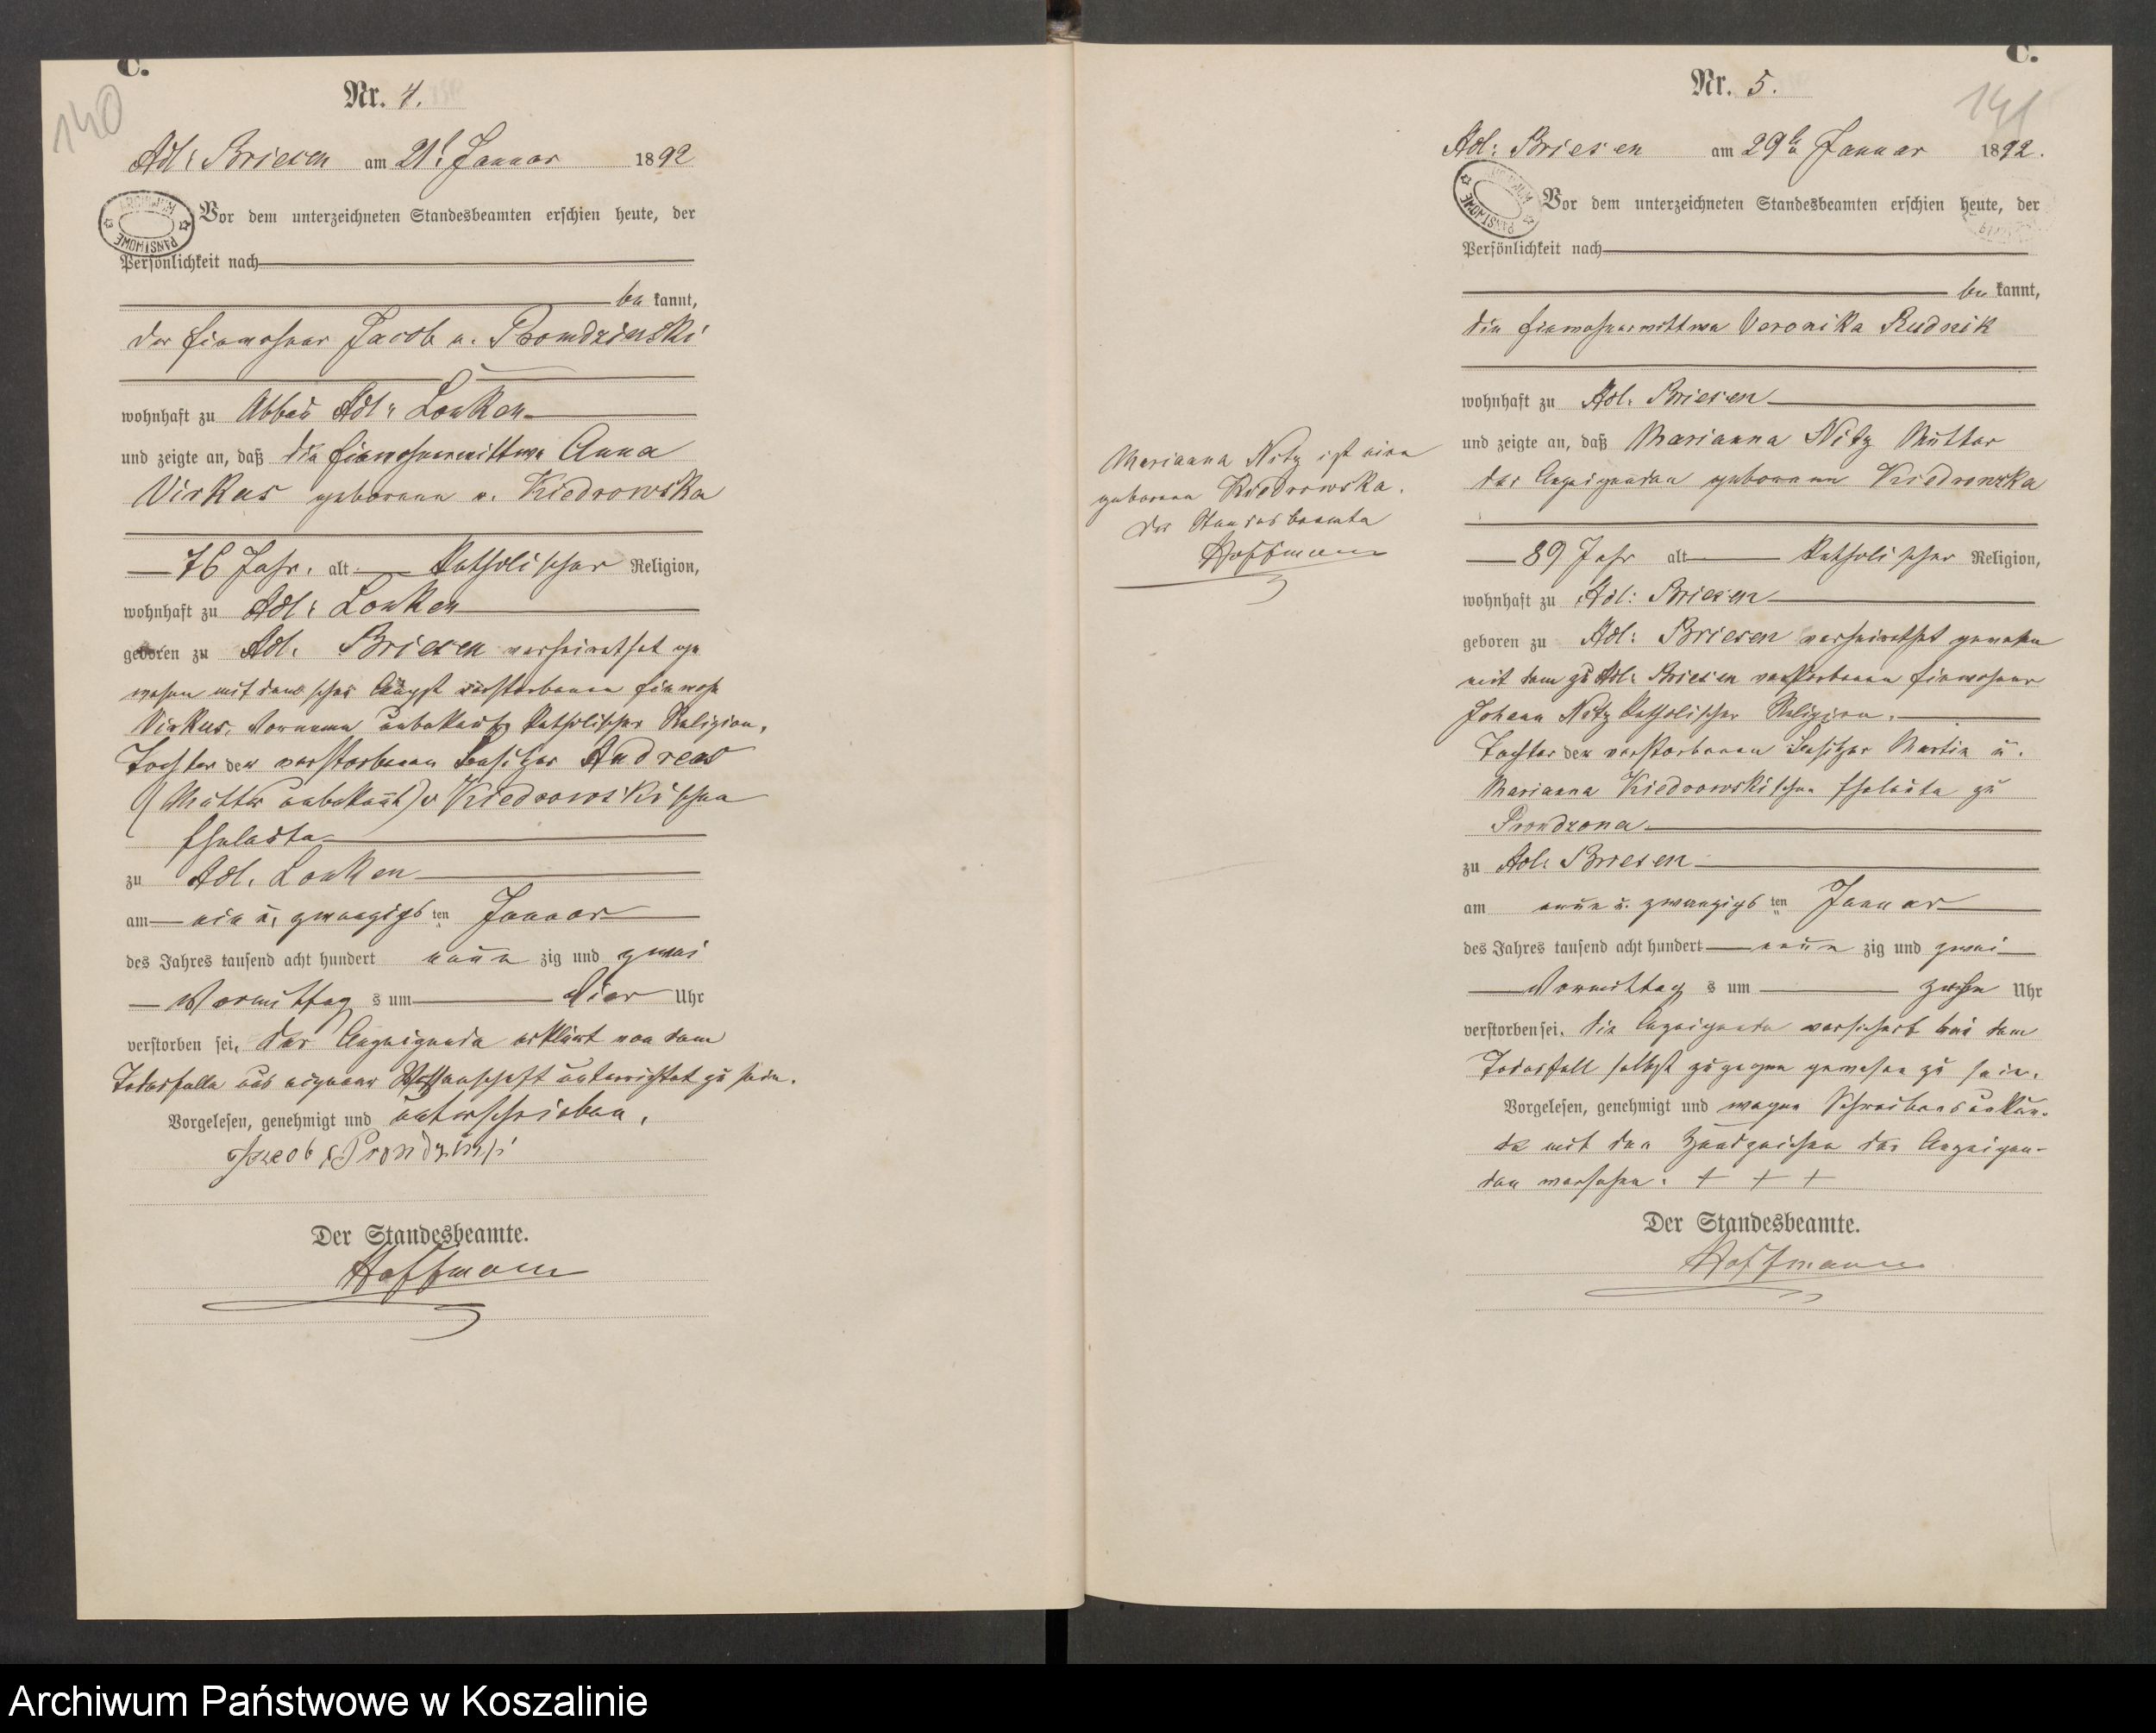 C.
140
Nr. 4.
Adl: Briesen am 21t Januar 1892
Vor dem unterzeichneten Standesbeamten erschien heute, der
ARCHIWUM PAŃSTWOWE
Persönlichkeit nach
be kannt,
der Einwohner Jacob v. Prondzinski
wohnhaft zu Abbau Adl: Lonken
und zeigte an, daß die Einwohnerwittwe Anna
Virkus geborene v. Kiedrowska
76 Jahr. alt Katholischer Religion,
wohnhaft zu Adl: Lonken
geboren zu Adl. Briesen verheirathet ge
wesen mit dem schon längst verstorbenen Einwoh
Virkus, Vorname unbekannt Katholischer Religion,
Tochter der verstorbenen Besitzer Andreas
(Mutter unbekannt) v Kiedrowskischen
Eheleute
zu Adl. Lonken
am ein u. zwanzigs ten Januar
des Jahres tausend acht hundert neun zig und zwei
Vormittag s um Vier Uhr
verstorben sei, der Anzeigende erklärt von dem
Todesfalle aus eigener Wissenschaft unterrichtet zu sein.
Vorgelesen, genehmigt und unterschrieben,
Jacob Prondzinski
Der Standesbeamte.
Hoffmann
Marianna Nitz ist eine
geborene Kiedrowska.
der Standesbeamte
Hoffmann
C.
141
Nr. 5.
Adl: Briesen am 29ten Januar 1892.
Vor dem unterzeichneten Standesbeamten erschien heute, der
ARCHIWUM PAŃSTWOWE
Persönlichkeit nach
be kannt,
die Einwohnerwittwe Veronika Rudnik
wohnhaft zu Adl: Briesen
und zeigte an, daß Marianna Nitz Mutter
der Anzeigenden geborene Kiedronzka
89 Jahr alt Katholischer Religion,
wohnhaft zu Adl: Briesen
geboren zu Adl: Briesen verheirathet gewesen
mit dem zu Adl: Briesen verstorbenen Einwohner
Johann Nitz Katholischer Religion.
Tochter der verstorbenen Besitzer Martin u.
Marianna Kiedrowskischen Eheleute zu
Prondzona
zu Adl: Briesen
am neun u. zwanzigs ten Januar
des Jahres tausend acht hundert neun zig und zwei
Vormittag s um zehn Uhr
verstorben sei, die Anzeigende versichert bei dem
Todesfall selbst zugegen gewesen zu sein.
Vorgelesen, genehmigt und wegen Schreibensunkun-
de mit den Handzeichen der Anzeigen-
den versehen. + + +
Der Standesbeamte.
Hoffmann
Archiwum Państwowe w Koszalinie